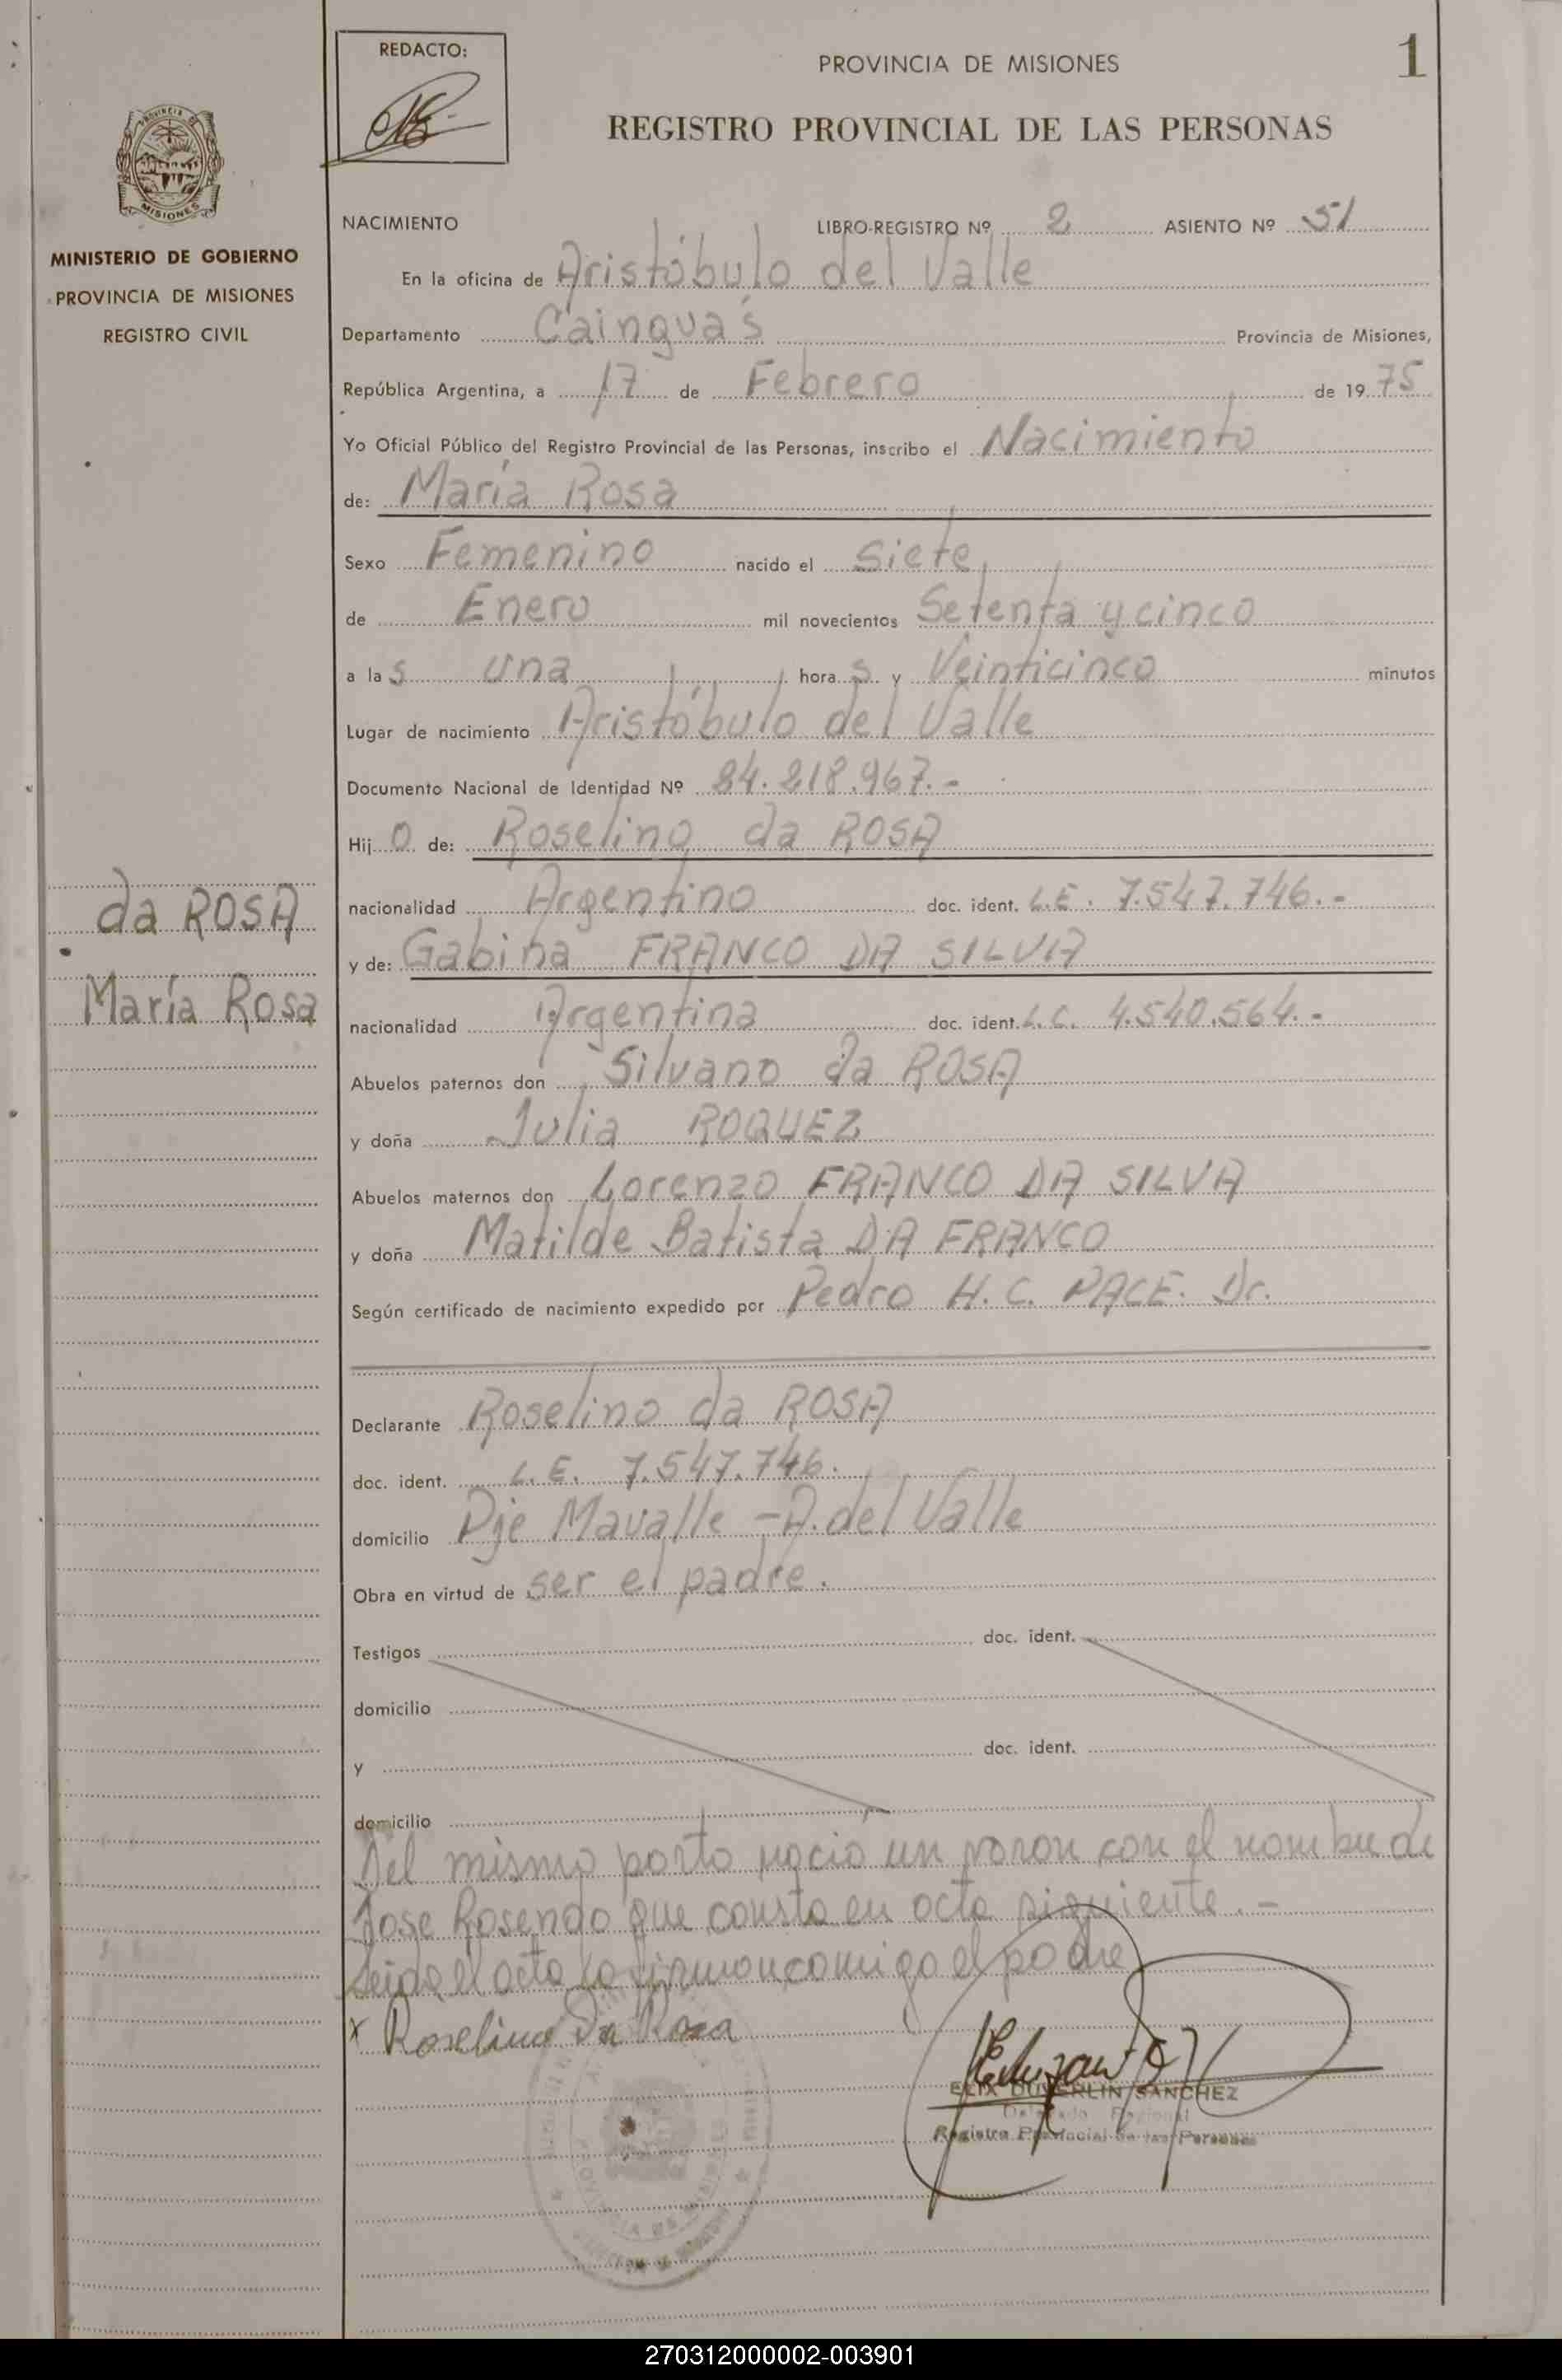 REDACTO:
PROVINCIA DE MISIONES
1
REGISTRO PROVINCIAL DE LAS PERSONAS
MISIONES
MINISTERIO DE GOBIERNO
PROVINCIA DE MISIONES
REGISTRO CIVIL
NACIMIENTO LIBRO-REGISTRO Nº 2 ASIENTO Nº 51
En la oficina de Aristóbulo del Valle
Departamento Cainguás Provincia de Misiones,
República Argentina, a 17 de Febrero de 1975
Yo Oficial Público del Registro Provincial de las Personas, inscribo el Nacimiento
de: María Rosa
Sexo Femenino nacido el siete
de Enero mil novecientos Setenta y cinco
a las una horas y Veinticinco minutos
Lugar de nacimiento Aristóbulo del Valle
Documento Nacional de Identidad Nº 24.218.967.-
Hijo de: Roselino da ROSA
da ROSA
María Rosa
nacionalidad Argentino doc. ident. L.E. 7.547.746.-
y de: Gabina FRANCO DA SILVA
nacionalidad Argentina doc. ident. L.C. 4.540.564.-
Abuelos paternos don Silvano da ROSA
y doña Julia ROQUEZ
Abuelos maternos don Lorenzo FRANCO DA SILVA
y doña Matilde Batista DA FRANCO
Según certificado de nacimiento expedido por Pedro H. C. PACE. Dr.
Declarante Roselino da ROSA
doc. ident. L.E. 7.547.746.
domicilio Pje Mavalle - A. del Valle
Obra en virtud de ser el padre.
Testigos doc. ident.
domicilio
y doc. ident.
domicilio
Del mismo parto nacio un varon con el nombre de
Jose Rosendo que consta en acta siguiente.-
Leida el acta la firman comigo el padre
x Roselino Da Rosa
ELIX DUVERLIN SANCHEZ
Delegado Regional
Registro Provincial de las Personas
270312000002-003901